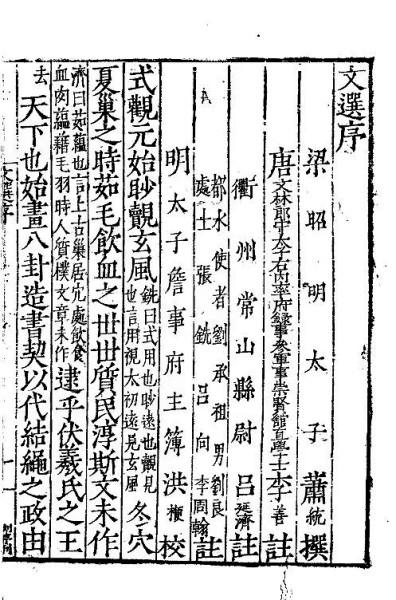 文選序
梁昭明太子蕭統撰
唐文林郎守太子右内率府録事參軍事崇賢館直學士李善註
衢州常山縣尉呂延濟註
都水使者劉承祖男劉良
處士張銑呂向李周翰註
明太子詹事府主簿洪楩校
式觀元始眇覿玄風銑曰式用也眇遠也覿見也言用視太初遠見玄風冬穴
夏巢之時茹毛飲血之世世質民淳斯文未作
濟曰茹藴也言上古巢居穴處飲食血肉藴藉毛羽時人質樸文章未作逮乎伏羲氏之王
去天下也始畫八卦造書契以代結繩之政由
文選序
一